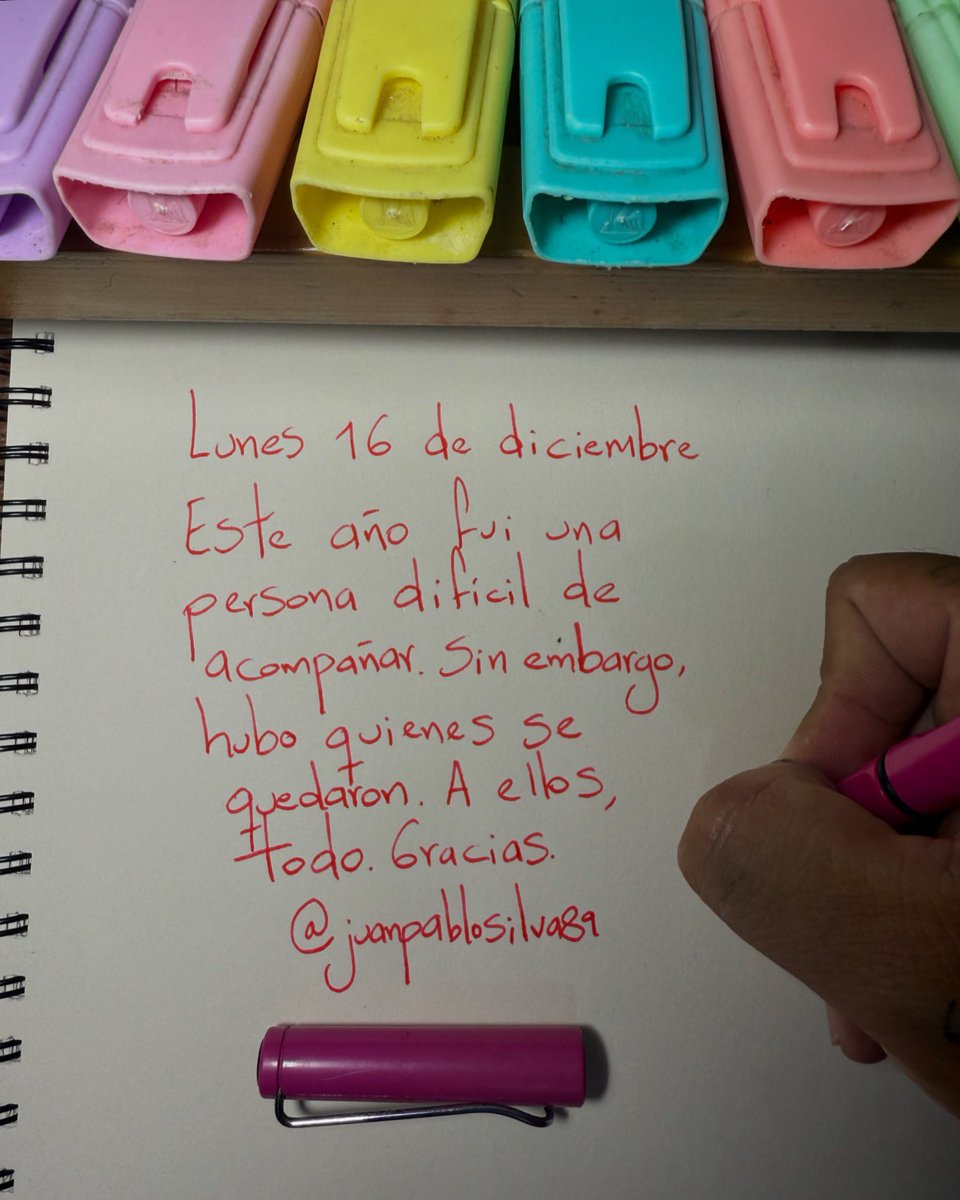 Lunes 16 de diciembre
Este año fui una
persona difícil de
acompañar. Sin embargo,
hubo quienes se
quedaron. A ellos,
todo. Gracias.
@juanpablosilva89